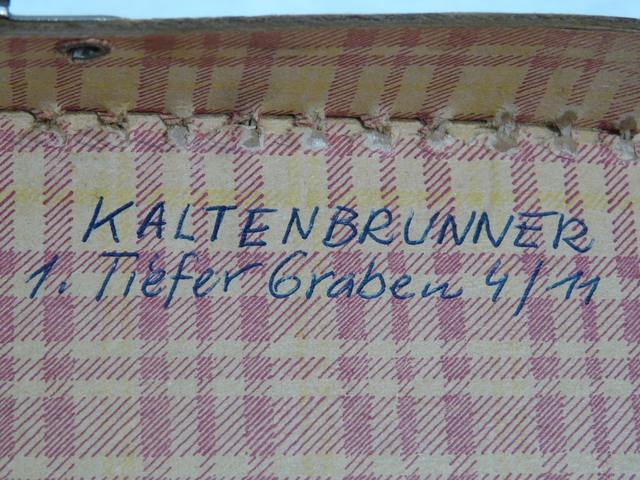 KALTENBRUNNER
1. Tiefer Graben 4/11